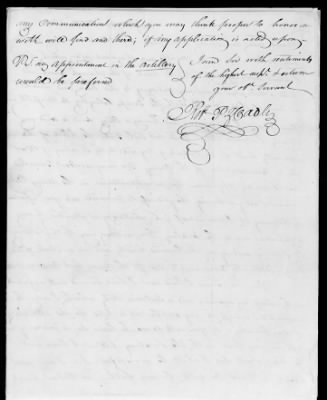 any Communication which you may think proper to honor
with will find and third; if any application is acted upon
I am Sir with sentiments
P.S. any Appointment in the Artillery
of the highest resp.t & esteem
would be preferred
your ob.t Servant